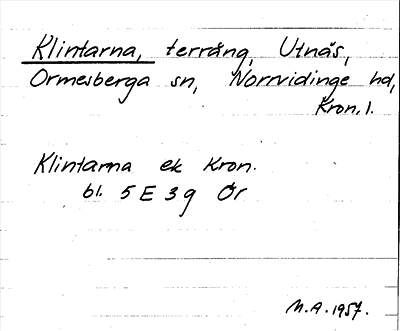 Klintarna, terräng, Utnäs,
Ormesberga sn, Norrvidinge hd,
Kron. l.
Klintarna ek Kron.
bl. 5 E 3 g Ör
M.A. 1957.